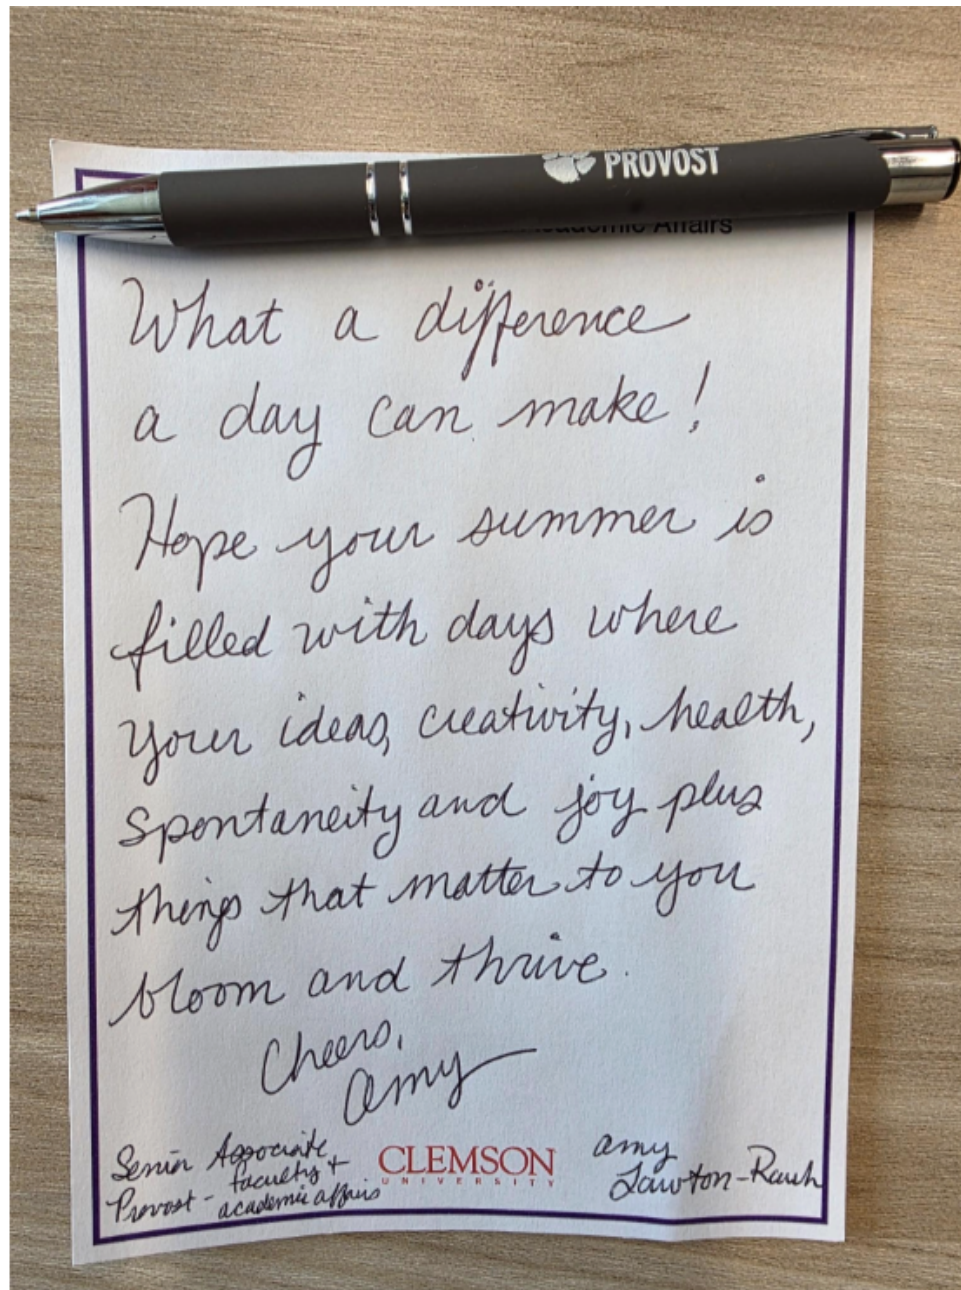 PROVOST
Academic Affairs
What a difference
a day can make!
Hope your summer is
filled with days where
your ideas, creativity, health,
spontaneity and joy plus
things that matter to you
bloom and thrive.
Cheers,
Amy
Senior Associate
Provost - faculty +
academic affairs
CLEMSON
UNIVERSITY
Amy
Lawton-Rauh